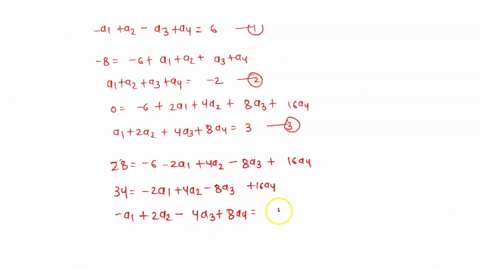 -a1 + a2 - a3 + a4 = 6 —①
-8 = -6 + a1 + a2 + a3 + a4
a1 + a2 + a3 + a4 = -2 —②
0 = -6 + 2a1 + 4a2 + 8a3 + 16a4
a1 + 2a2 + 4a3 + 8a4 = 3 —③
28 = -6 - 2a1 + 4a2 - 8a3 + 16a4
34 = -2a1 + 4a2 - 8a3 + 16a4
-a1 + 2a2 - 4a3 + 8a4 =